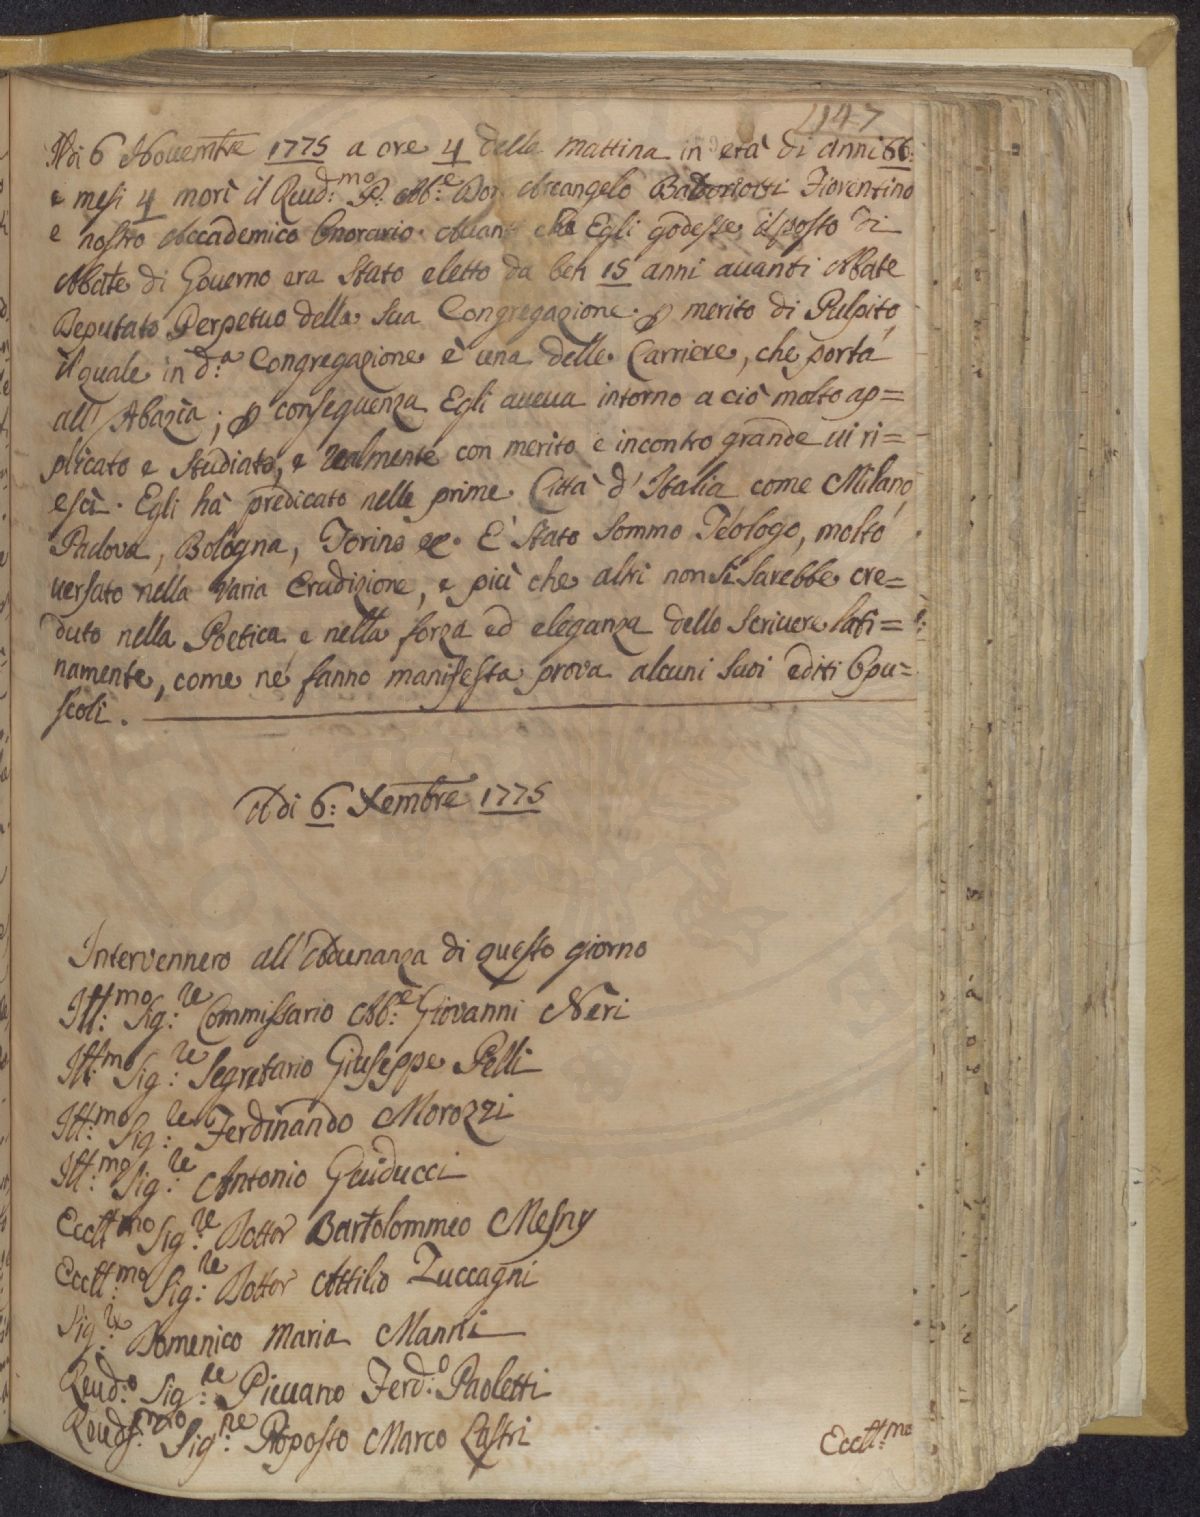 147
Adi 6 Novembre 1775 a ore 4 della mattina in età di anni 66:
e mesi 4 morì il Revd:mo P. Ab:e Don Arcangelo Fiorentino
e nostro Accademico Onorario. Avanti che Egli godesse il posto di
Abate di Governo era stato eletto da ben 15 anni avanti Abate
Deputato Perpetuo della sua Congregazione. p merito di Pulpito,
il quale in d:a Congregazione è una delle Carriere, che porta
all'Abazia; p conseguenza Egli aveva intorno a ciò molto ap=
plicato e studiato, e realmente con merito e incontro grande vi ri=
escì. Egli hà predicato nelle prime Città d'Italia come Milano,
Padova, Bologna, Torino &c. E' stato sommo Teologo, molto
versato nella varia Erudizione, e più che altri non si sarebbe cre=
duto nella Poetica e nella forza ed eleganza dello scrivere lati=
namente, come ne fanno manifesta prova alcuni suoi editi Opu=
scoli.
A di 6: Xembre 1775
Intervennero all'Adunanza di questo giorno
Ill:mo Sig:re Commissario Ab:e Giovanni Neri
Ill:mo Sig:re Segretario Giuseppe Pelli
Ill:mo Sig:re Ferdinando Morozzi
Ill:mo Sig:re Antonio Guiducci
Eccll:mo Sig:re Dottor Bartolommeo Mesny
Eccll:mo Sig:re Dottor Attilio Zuccagni
Sig:re Domenico Maria Manni
Revd:o Sig:re Pievano Ferd:o Paoletti
Revds:mo Sig:re Proposto Marco Lastri
Eccll:mo